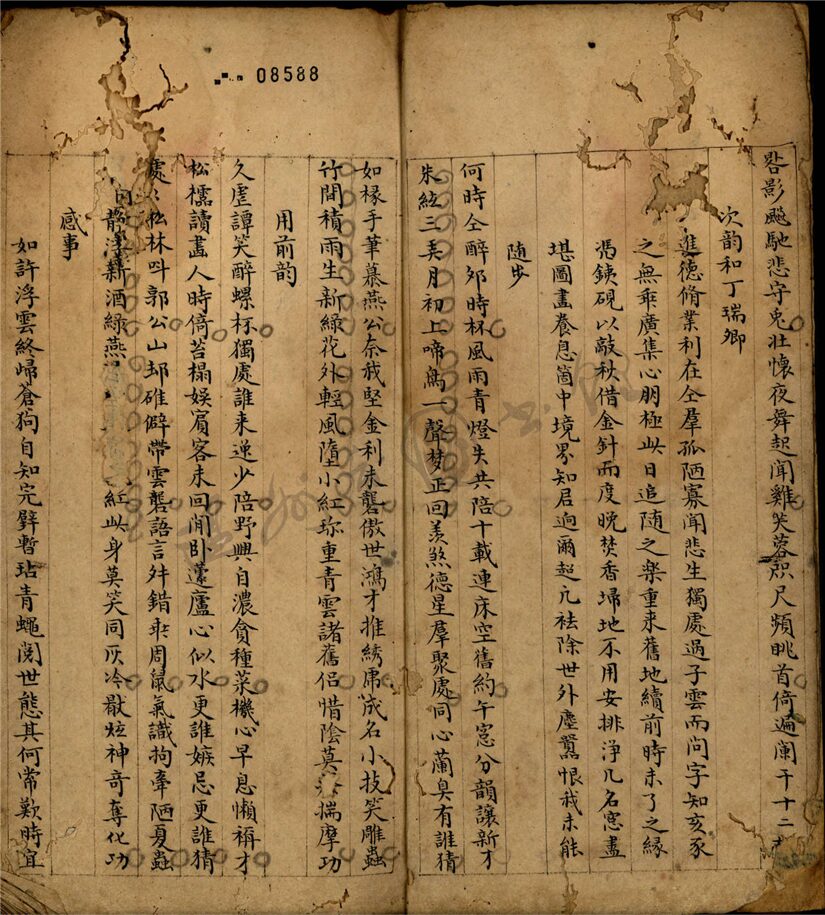 08588
咎影颷馳悲守兎壯懷夜舞起聞雞芙蓉咫尺頻眺首倚遍闌干十二
次韵和丁瑞卿
進德脩業利在仝羣孤陋寡聞悲生獨處過子雲而问字知亥豕
之無乖廣集心朋極此日追随之楽重来舊地續前時未了之縁
馮銕硯以敲秋借金針而度晚焚香埽地不用安排浄几名窓盡
堪圖畫養息箇中境界知君逈爾超凢祛除世外塵嚣恨我未能
随步
何時仝醉夘時杯風雨青燈失共陪十載連床空舊約午窓分韻讓新才
朱絃三弄月初上啼鳥一聲梦正回羡煞德星羣聚處同心蘭臭有誰猜
如椽手筆慕燕公奈我堅金利未礱傲世鴻才推綉虎成名小技笑雕蟲
竹間積雨生新綠花外輕風墮小紅珎重青雲諸舊侣惜陰莫 揣摩功
用前韵
久虗譚笑醉螺杯獨處誰来逆少陪野興自濃貪種菜機心早息懶稱才
松檽讀畫人時倚苔榻娱賓客未回閒卧蘧廬心似水更誰嫉忌更誰猜
處々松林呌郭公山邨碓僻帶雲礱語言舛錯乖周鼠氣識拘牽陋夏蟲
新酒綠燕 紅此身莫笑同灰冷猒炫神奇奪化功
感事
如許浮雲終歸蒼狗自知完璧暫玷青蠅閲世態其何常歎時宜